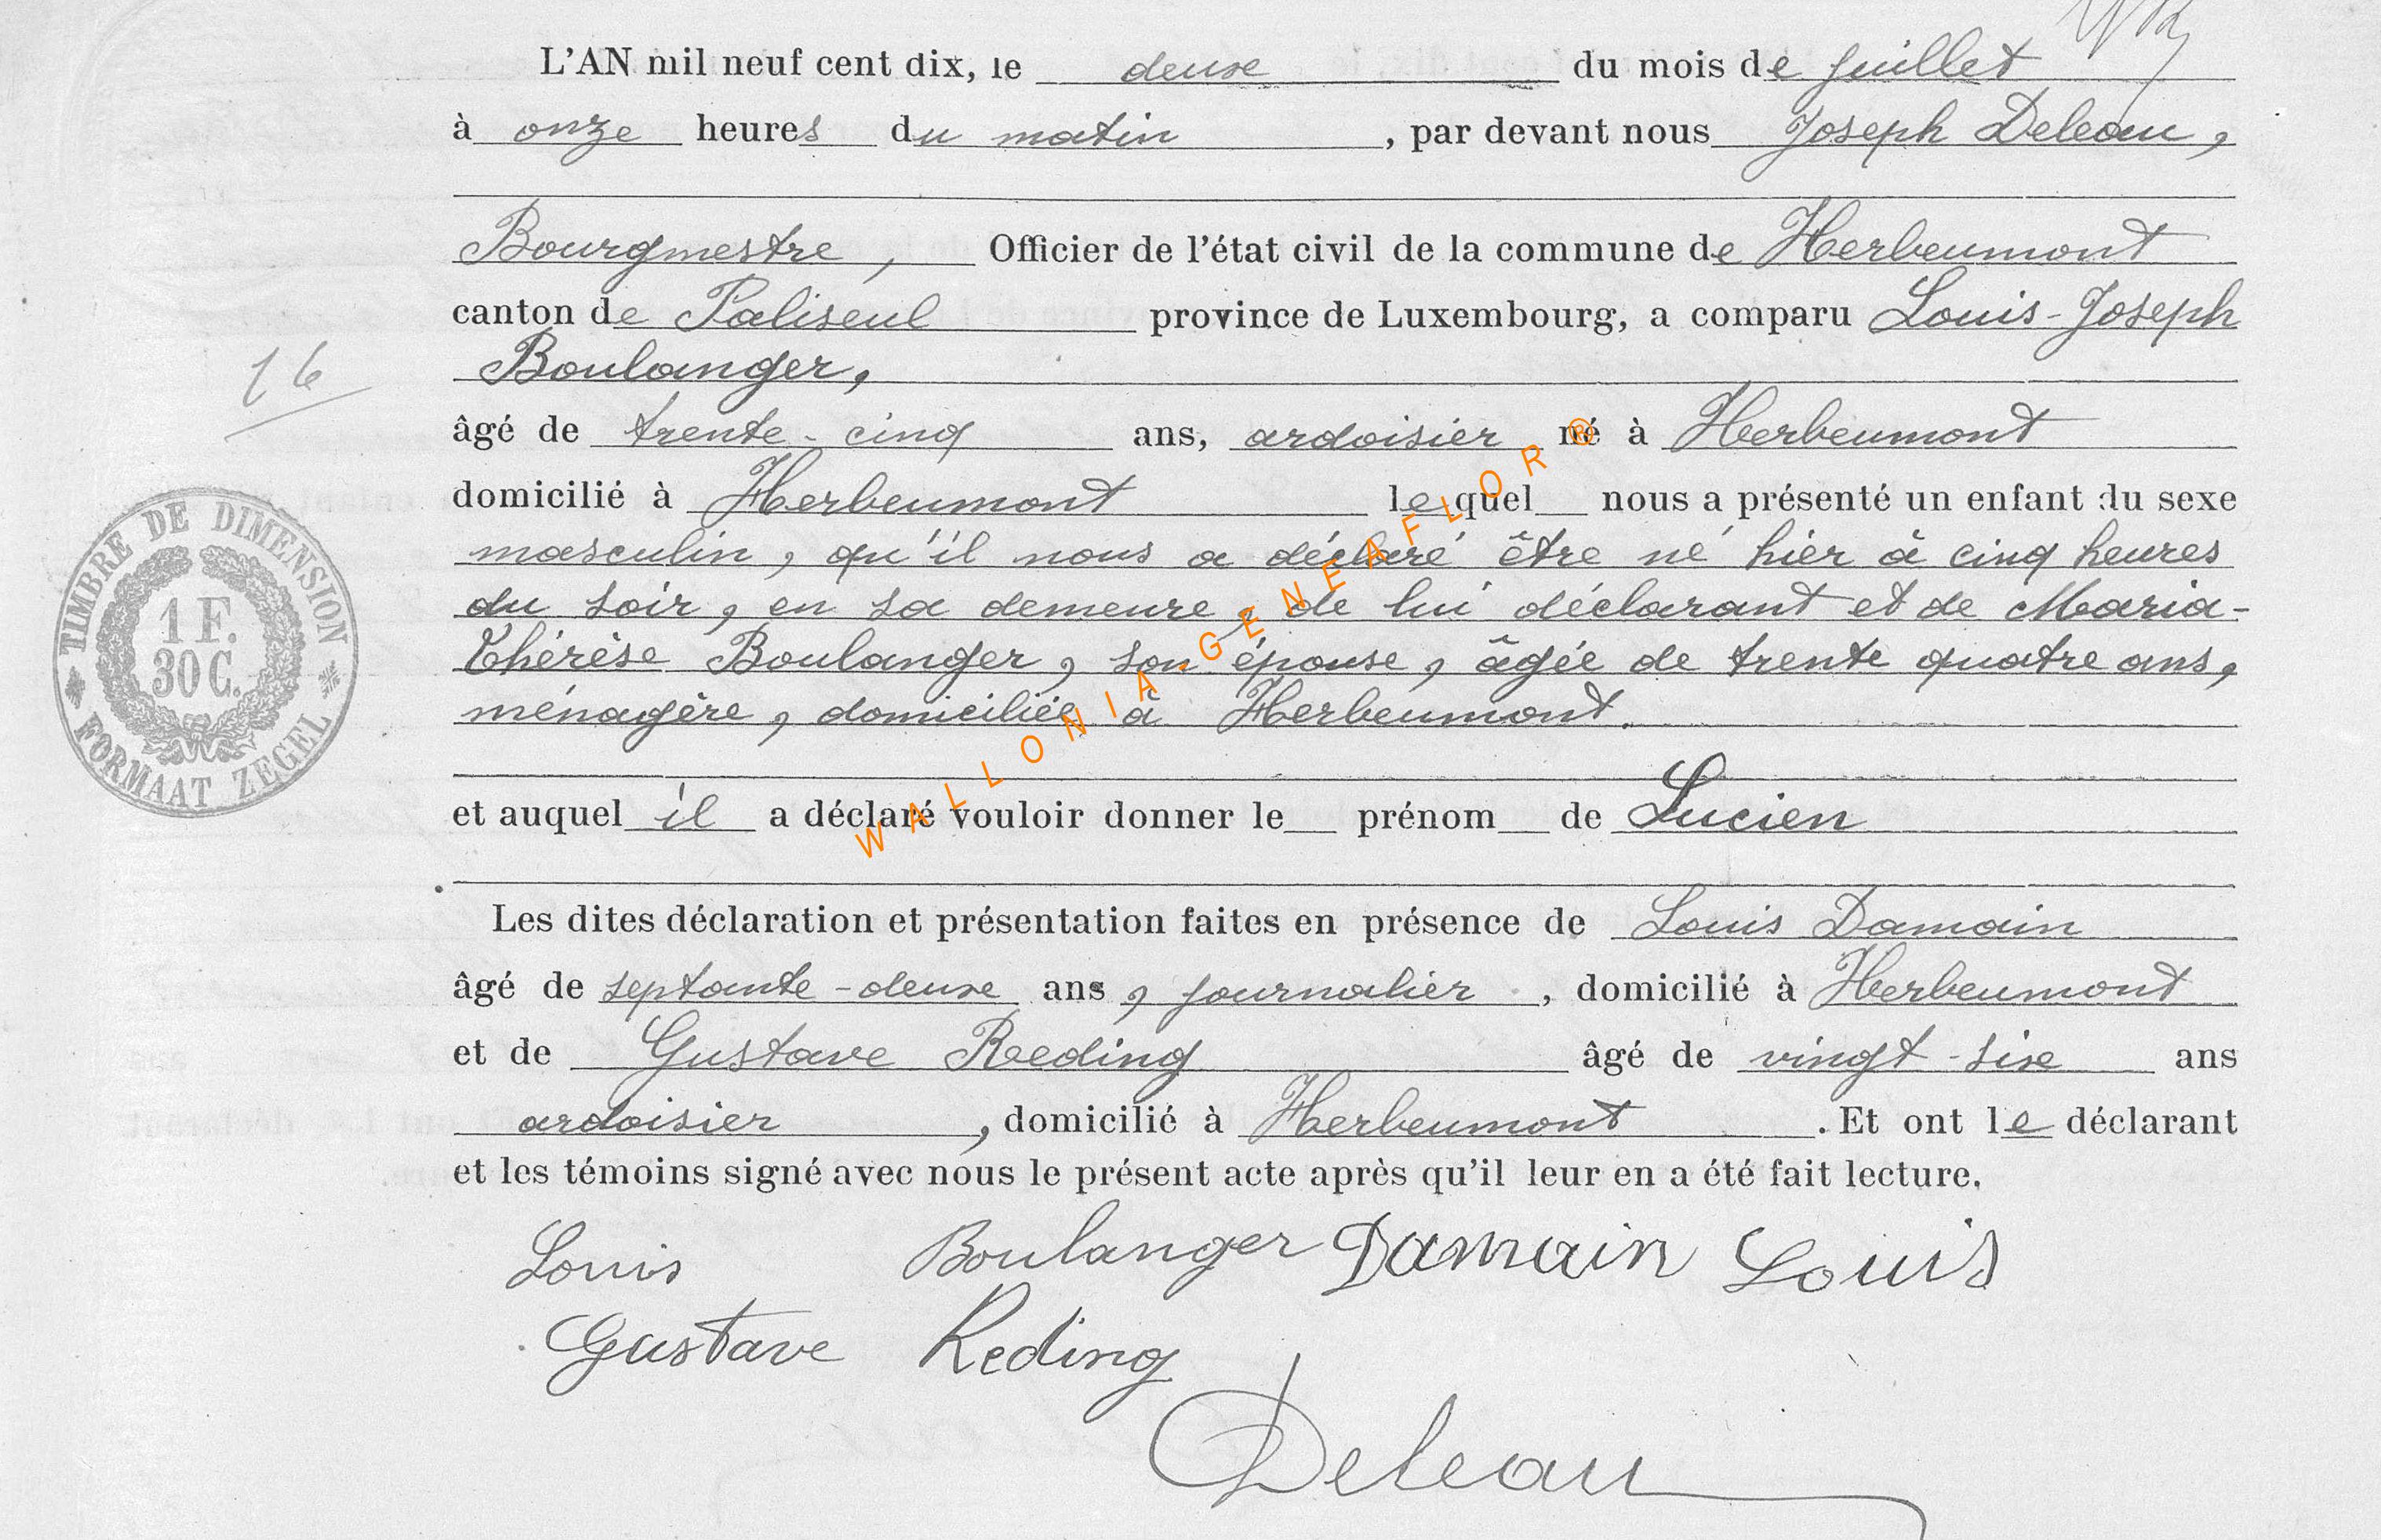 L'AN mil neuf cent dix, le deuxe du mois de juillet
à onze heures du matin, par devant nous Joseph Deleau,
Bourgmestre, Officier de l'état civil de la commune de Herbeumont
canton de Paliseul province de Luxembourg, a comparu Louis-Joseph
Boulanger,
16
âgé de trente-cinq ans, ardoisier né à Herbeumont
domicilié à Herbeumont lequel nous a présenté un enfant du sexe
masculin, qu'il nous a déclaré être né hier à cinq heures
du soir, en sa demeure, de lui déclarant et de Maria-
Thérèse Boulanger, son épouse, âgée de trente quatre ans,
ménagère, domiciliée à Herbeumont.
TIMBRE DE DIMENSION
1 F.
30 C.
FORMAAT ZEGEL
WALLONIA-GENEAFLOR®
et auquel il a déclaré vouloir donner le prénom de Lucien
Les dites déclaration et présentation faites en présence de Louis Damain
âgé de septante-deux ans, journalier, domicilié à Herbeumont
et de Gustave Reding âgé de vingt-six ans
ardoisier, domicilié à Herbeumont. Et ont le déclarant
et les témoins signé avec nous le présent acte après qu'il leur en a été fait lecture.
Louis Boulanger Damain Louis
Gustave Reding
Deleau